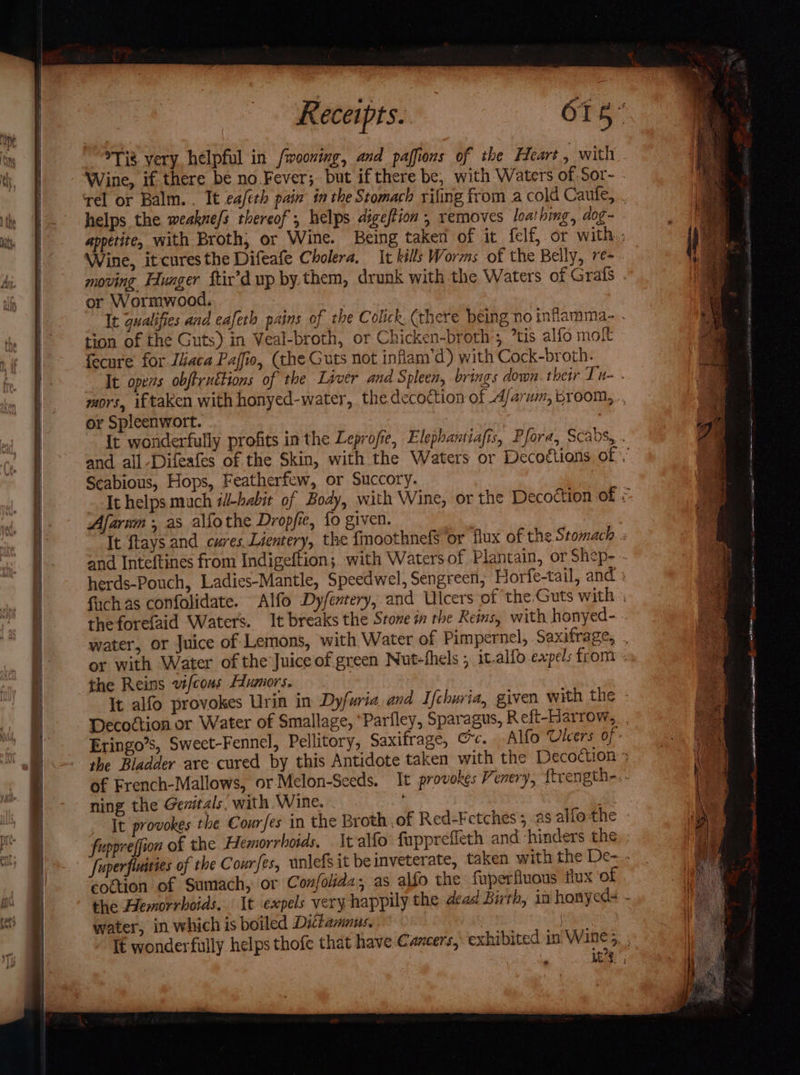 Receipts. 615
'Tis very helpful in ſwooning, and paſſions of the Heart, with
Wine, if there be no Fever; but if there be, with Waters of Sor-
rel or Balm. It eaſeth pain in the Stomach riſing from a cold Cauſe,
helps the weakneſs thereof, helps digeſtion; removes loathing, dog-
appetite, with Broth, or Wine. Being taken of it ſelf, or with
Wine, it cures the Diſeaſe Cholera. It kills Worms of the Belly, re-
moving Hunger ſtir'd up by them, drunk with the Waters of Graſs
or Wormwood.
It qualifies and eaſeth pains of the Colick (there being no inflamma-
tion of the Guts) in Veal-broth, or Chicken-broth; 'tis alſo moſt
ſecure for Iliaca Paſſio, (the Guts not inflam'd) with Cock-broth.
It opens obſtructions of the Liver and Spleen, brings down their Tu-
mors, if taken with honyed-water, the decoction of Aſarum, broom,
or Spleenwort.
It wonderfully profits in the Leproſie, Elephantiaſis, Pſora, Scabs,
and all Diſeaſes of the Skin, with the Waters or Decoctions of
Scabious, Hops, Featherfew, or Succory.
It helps much ill-habit of Body, with Wine, or the Decoction of
Aſarum; as alſo the Dropſie, ſo given.
It ſtays and cures Lientery, the ſmoothneſs or flux of the Stomach
and Inteſtines from Indigeſtion; with Waters of Plantain, or Shep-
herds-Pouch, Ladies-Mantle, Speedwel, Sengreen, Horſe-tail, and
ſuch as conſolidate. Alſo Dyſentery, and Ulcers of the Guts with
the foreſaid Waters. It breaks the Stone in the Reins, with honyed-
water, or Juice of Lemons, with Water of Pimpernel, Saxifrage,
or with Water of the Juice of green Nut-ſhels; it alſo expels from
the Reins viſcous Humors.
It alſo provokes Urin in Dyſuria and Iſchuria, given with the
Decoction or Water of Smallage, Parſley, Sparagus, Reſt-Harrow,
Eringo's, Sweet-Fennel, Pellitory, Saxifrage, &c. Alſo Ulcers of
the Bladder are cured by this Antidote taken with the Decoction
of French-Mallows, or Melon-Seeds. It provokes Venery, ſtrength-
ning the Genitals, with Wine.
It provokes the Courſes in the Broth of Red-Fetches; as alſo the
ſuppreſſion of the Hemorrhoids. It alſo ſuppreſſeth and hinders the
ſuperfluities of the Courſes, unleſs it be inveterate, taken with the De-
coction of Sumach, or Conſolida; as alſo the ſuperfluous flux of
the Hemorrhoids. It expels very happily the dead Birth, in honyed-
water, in which is boiled Dictamnus.
It wonderfully helps thoſe that have Cancers, exhibited in Wine;
it's